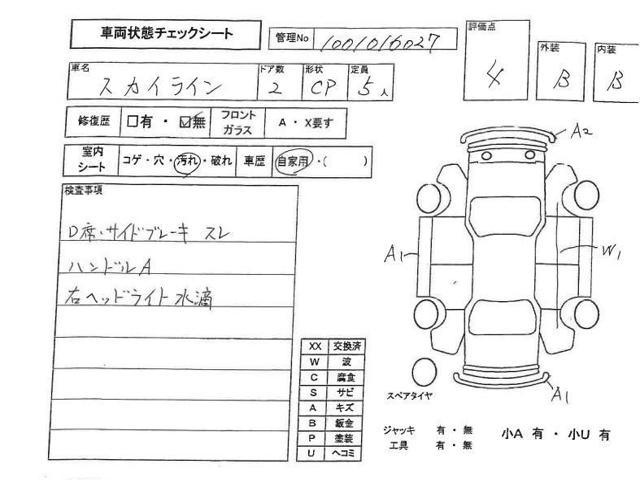 車両状態チェックシート
管理No 1001016027
評価点 4
外装 B
内装 B
車名 スカイライン
ドア数 2
形状 CP
定員 5人
修復歴 □有・☑無
フロントガラス A・X要す
室内シート コゲ・穴・汚れ・破れ
車歴 自家用・( )
検査事項
D席・サイドブレーキ スレ
ハンドルA
右ヘッドライト水滴
A2
A1
W1
A1
XX 交換済
W 波
C 腐食
S サビ
A キズ
B 鈑金
P 塗装
U ヘコミ
スペアタイヤ
ジャッキ 有・無
工具 有・無
小A 有・小U 有